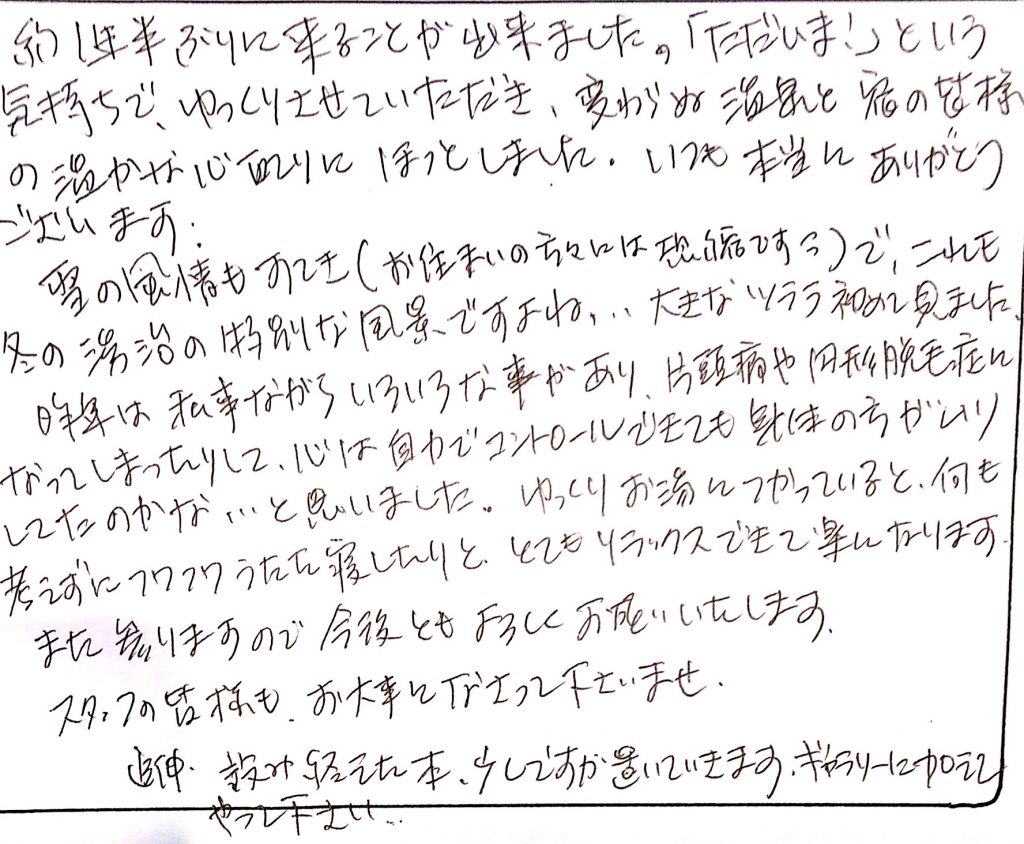 約1年半ぶりに来ることが出来ました。「ただいま!」という
気持ちで、ゆっくりさせていただき、変わらぬ温泉と宿の皆様
の温かな心配りにほっとしました。いつも本当にありがとう
ございます。
雪の風情もすてき(お住まいの方々には恐縮ですが)で、これも
冬の湯治の特別な風景ですよね... 大きなツララ初めて見ました。
昨年は私事ながらいろいろな事があり、片頭痛や円形脱毛症に
なってしまったりして、心は自力でコントロールできても身体の方がムリ
してたのかな...と思いました。ゆっくりお湯につかっていると、何も
考えずにフワフワうたた寝したりと、とてもリラックスできて楽になります。
また参りますので今後ともよろしくお願いいたします。
スタッフの皆様も、お大事になさって下さいませ。
追伸. 読み終えた本、少しですが置いていきます。ギャラリーに加えて
やって下さい...